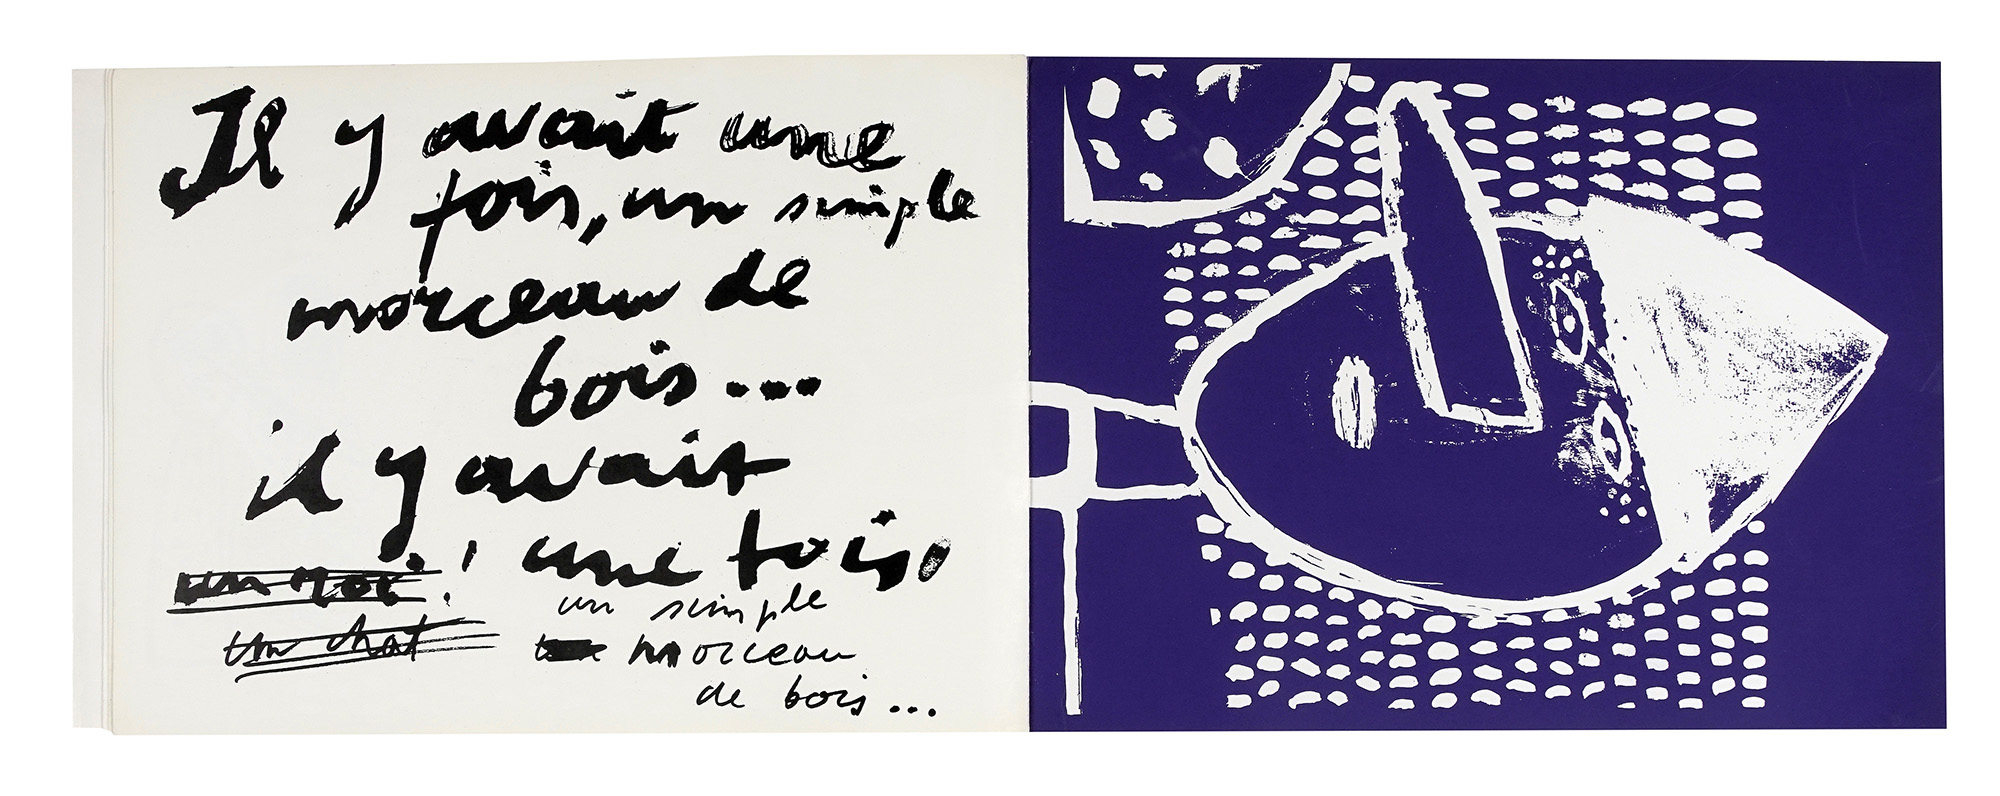 Il y avait une
fois, un simple
morceau de
bois...
il y avait
une fois
un roi
un simple
un chat
morceau
de bois...